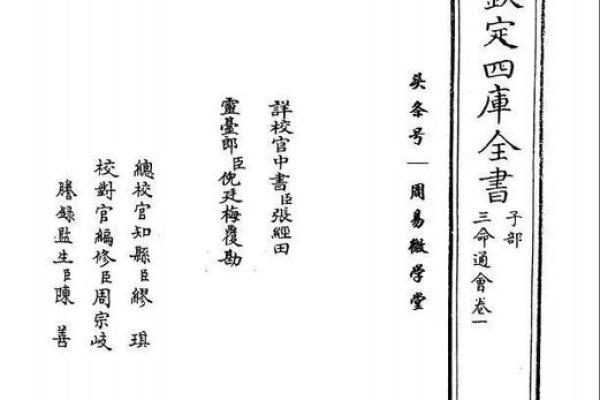 欽定四庫全書
子部
三命通會卷一
头条号 | 周易微学堂
詳校官中書臣張經田
靈臺郎臣倪廷梅覆勘
總校官知縣臣繆琪
校對官編修臣周宗岐
謄錄監生臣陳善